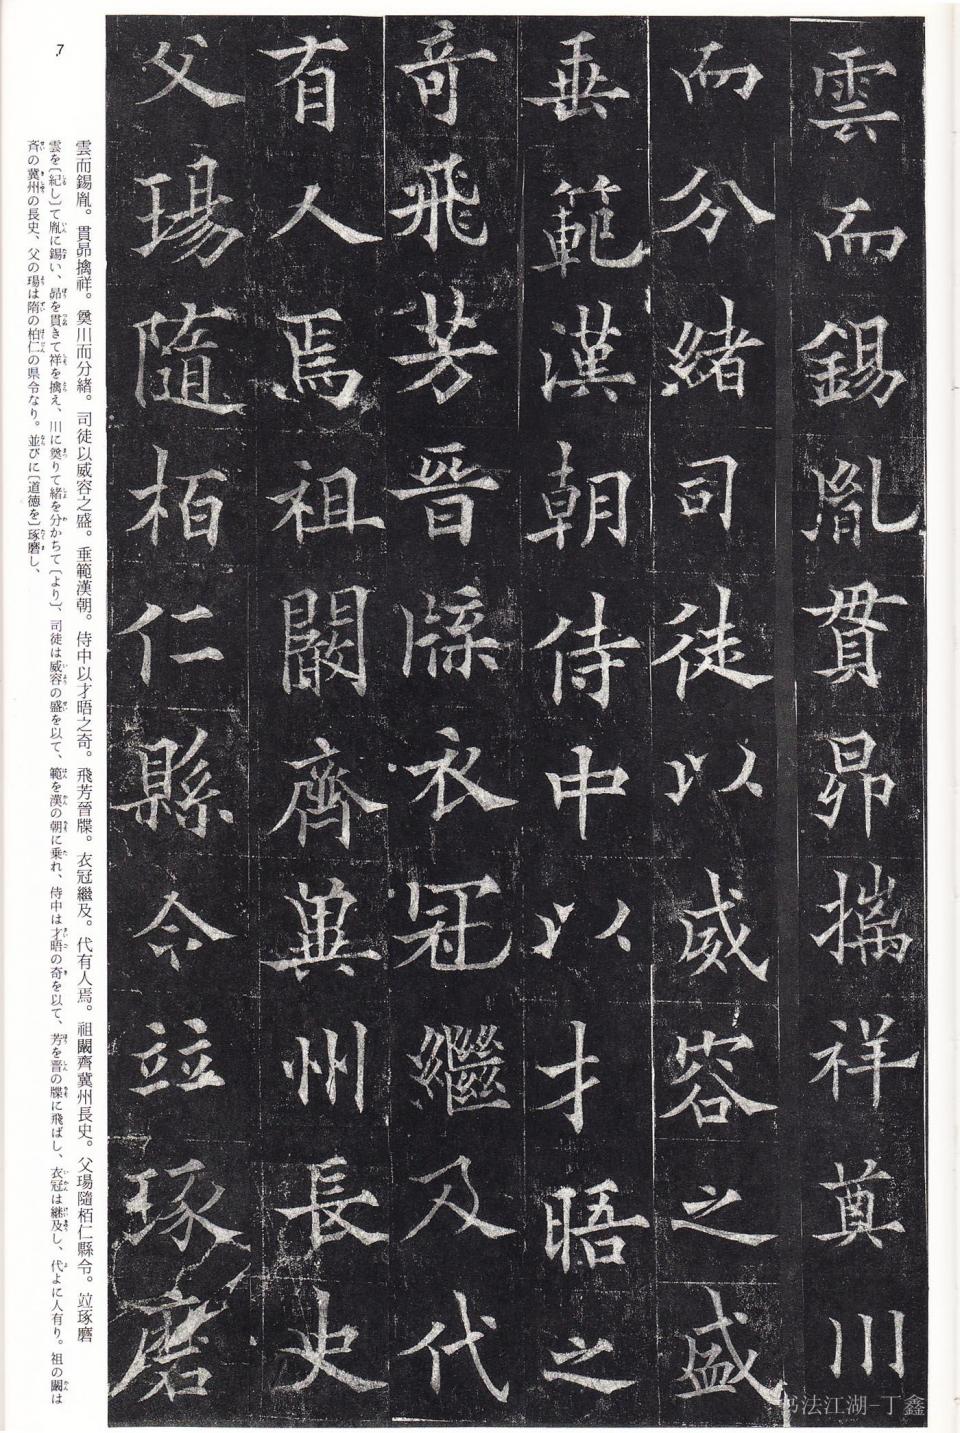 雲而錫胤貫昴擒祥奠川
而分緒司徒以威容之盛
垂範漢朝侍中以才晤之
奇飛芳晉牒衣冠繼及代
有人焉祖闞齊冀州長史
父瑒隨栢仁縣令竝琢磨
雲而錫胤。貫昴擒祥。奠川而分緒。司徒以威容之盛。垂範漢朝。侍中以才晤之奇。飛芳晉牒。衣冠繼及。代有人焉。祖闞齊冀州長史。父瑒隨栢仁縣令。竝琢磨
雲を〔紀し〕て胤に錫い、昴を貫きて祥を擒え、川に奠りて緒を分かちて〔より〕、司徒は威容の盛を以て、範を漢の朝に垂れ、侍中は才晤の奇を以て、芳を晋の牒に飛ばし、衣冠は継及し、代よに人有り。祖の闞は
斉の冀州の長史、父の瑒は隋の柏仁の県令なり。並びに〔道徳を〕琢磨し、
7
书法江湖-丁鑫